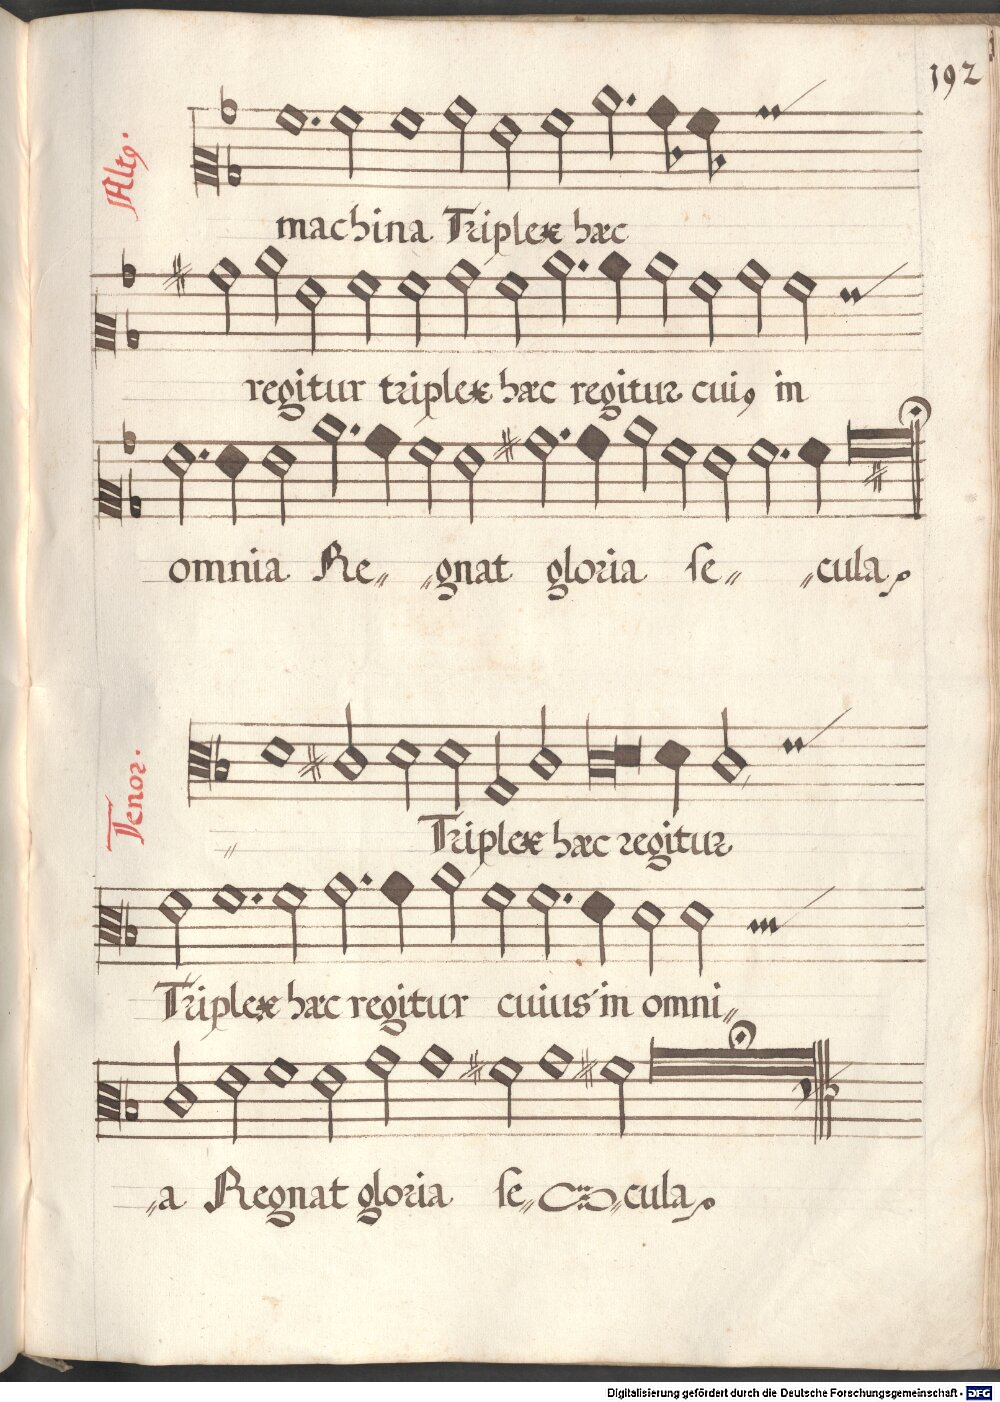 192
Altꝰ.
machina Triplex hæc
regitur triplex hæc regitur cuiꝰ in
omnia Re〃 〃gnat gloria se〃 〃cula
Tenor.
〃 Triplex hæc regitur
Triplex hæc regitur cuius in omni〃
〃a Regnat gloria se〃 〃cula
Digitalisierung gefördert durch die Deutsche Forschungsgemeinschaft - DFG